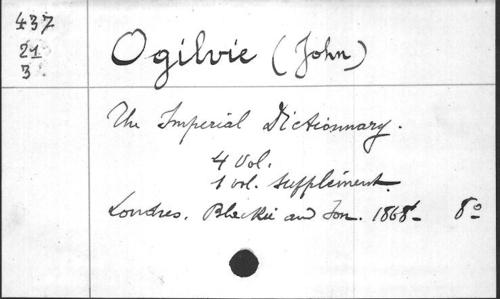 437
21
3
Ogilvie (John)
The Imperial Dictionnary.
4 Vol.
1 vol. Supplément.
Londres. Blackie and Son. 1868- 8º